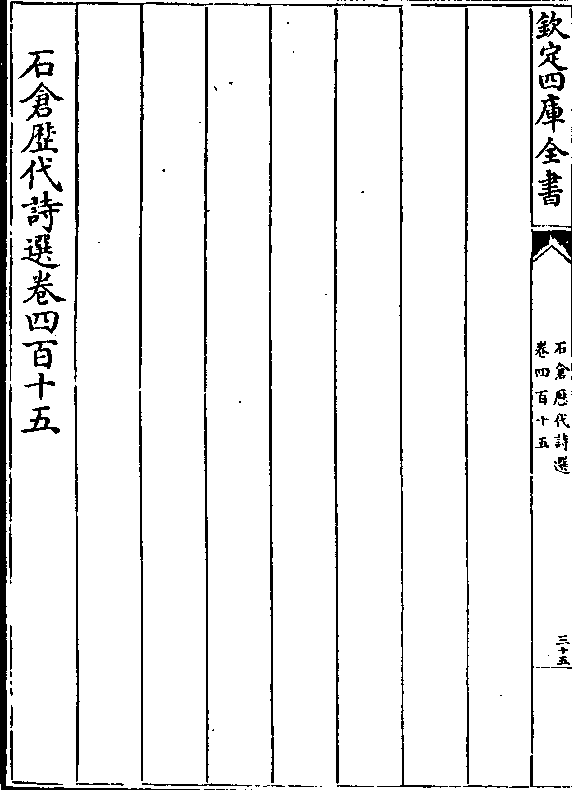 欽定四庫全書
石倉歷代詩選
卷四百十五
三十五
石倉歷代詩選卷四百十五